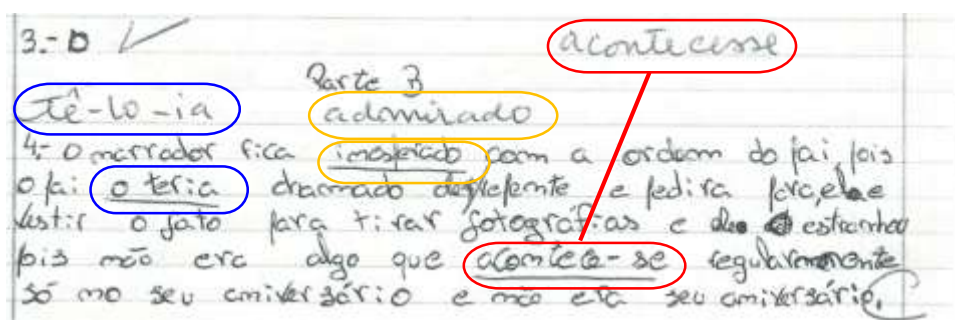 3.- D acontecesse
Parte B
Tê-lo-ia admirado
4.- O narrador fica com a ordem do pai, pois
o pai o teria chamado de repente e pedira para ele
vestir o fato para tirar fotográfias e estranhou
pois não era algo que acontece-se regularmente
só no seu aniversário e não era seu aniversário.